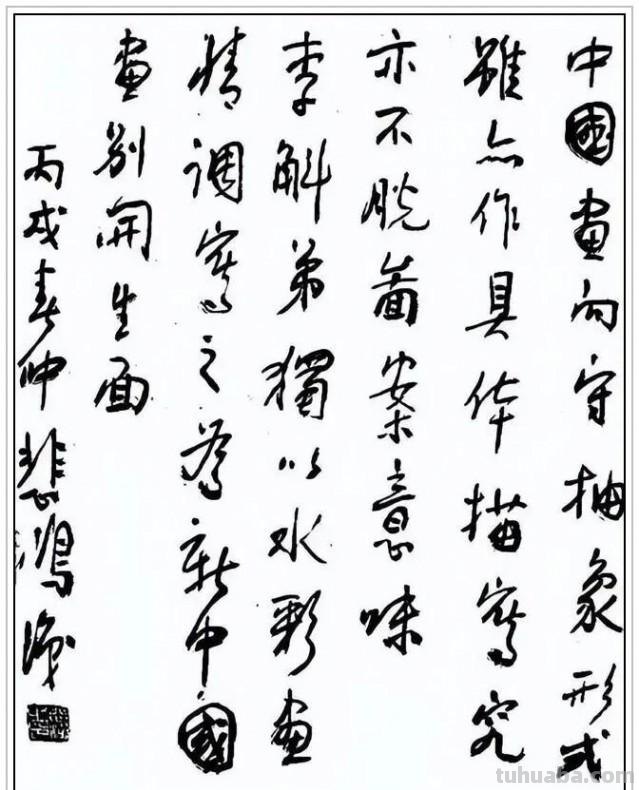 中國畫向守抽象形式
雖亦作具体描寫究
亦不脱啚案意味
李斛弟獨以水彩畫
情调寫之為新中國
畫别開生面
丙戌春仲悲鴻識
tuhuaba.com